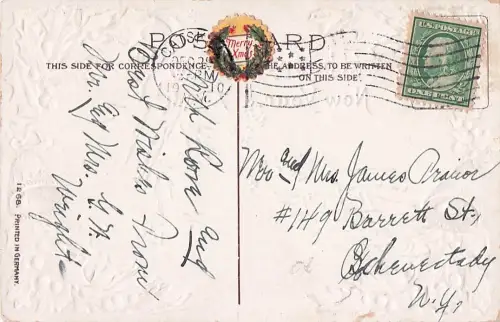 POST CARD
Merry Xmas
THIS SIDE FOR CORRESPONDENCE
THE ADDRESS, TO BE WRITTEN
ON THIS SIDE.
PM
U.S. POSTAGE
ONE CENT
With Love and
Good Wishes From
Mr. & Mrs. G. W.
Wright
Mr and Mrs James
#149 Barrett St.,
Schenectady
N.Y.
1268. PRINTED IN GERMANY.